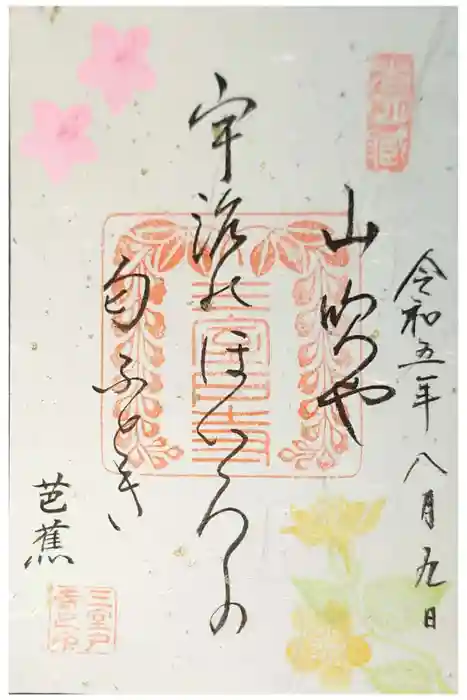 令和五年八月九日
山吹や
宇治のほいろの
匂ふとき
芭蕉
三室戸寺
三室戸
寺之印